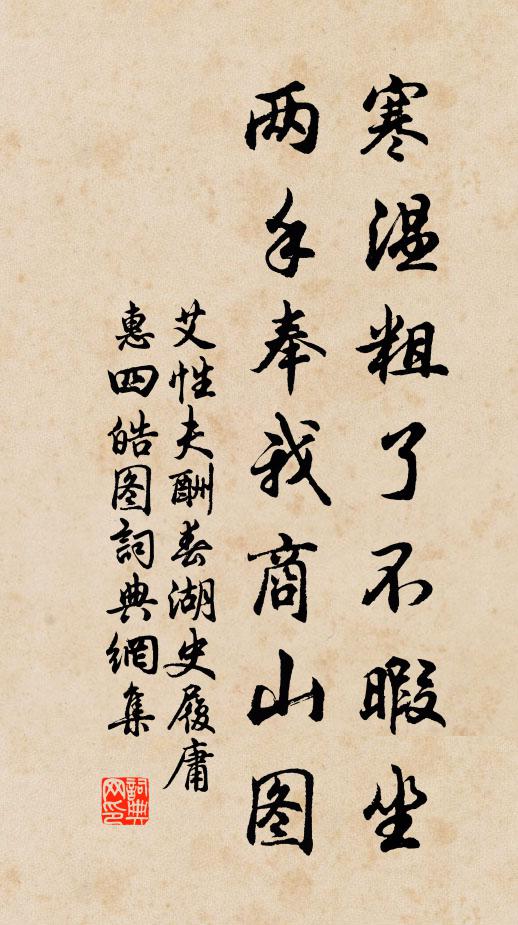 寒温粗了不暇坐
两手奉我商山图
艾性夫酬春湖史履庸
惠四皓图詞典網集
詞典网印